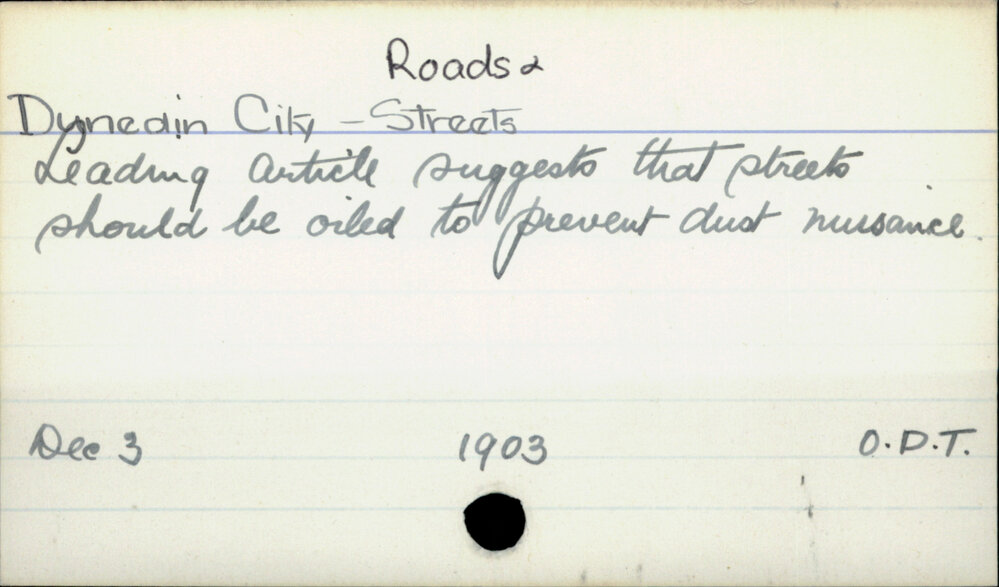 Roads &
Dunedin City - Streets
Leading article suggests that streets
should be oiled to prevent dust nuisance.
Dec 3 1903 O.D.T.